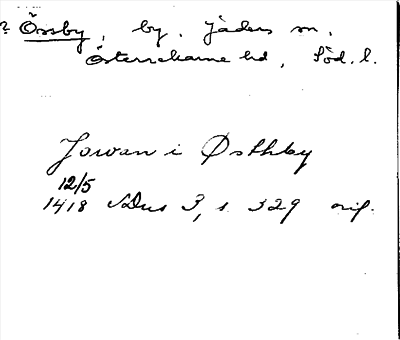 ? Össby, by, Jäders sn,
Österrekarne hd, Söd. l.
Jowan i Østhby
12/5
1418 SDns 3, s. 329 orig.